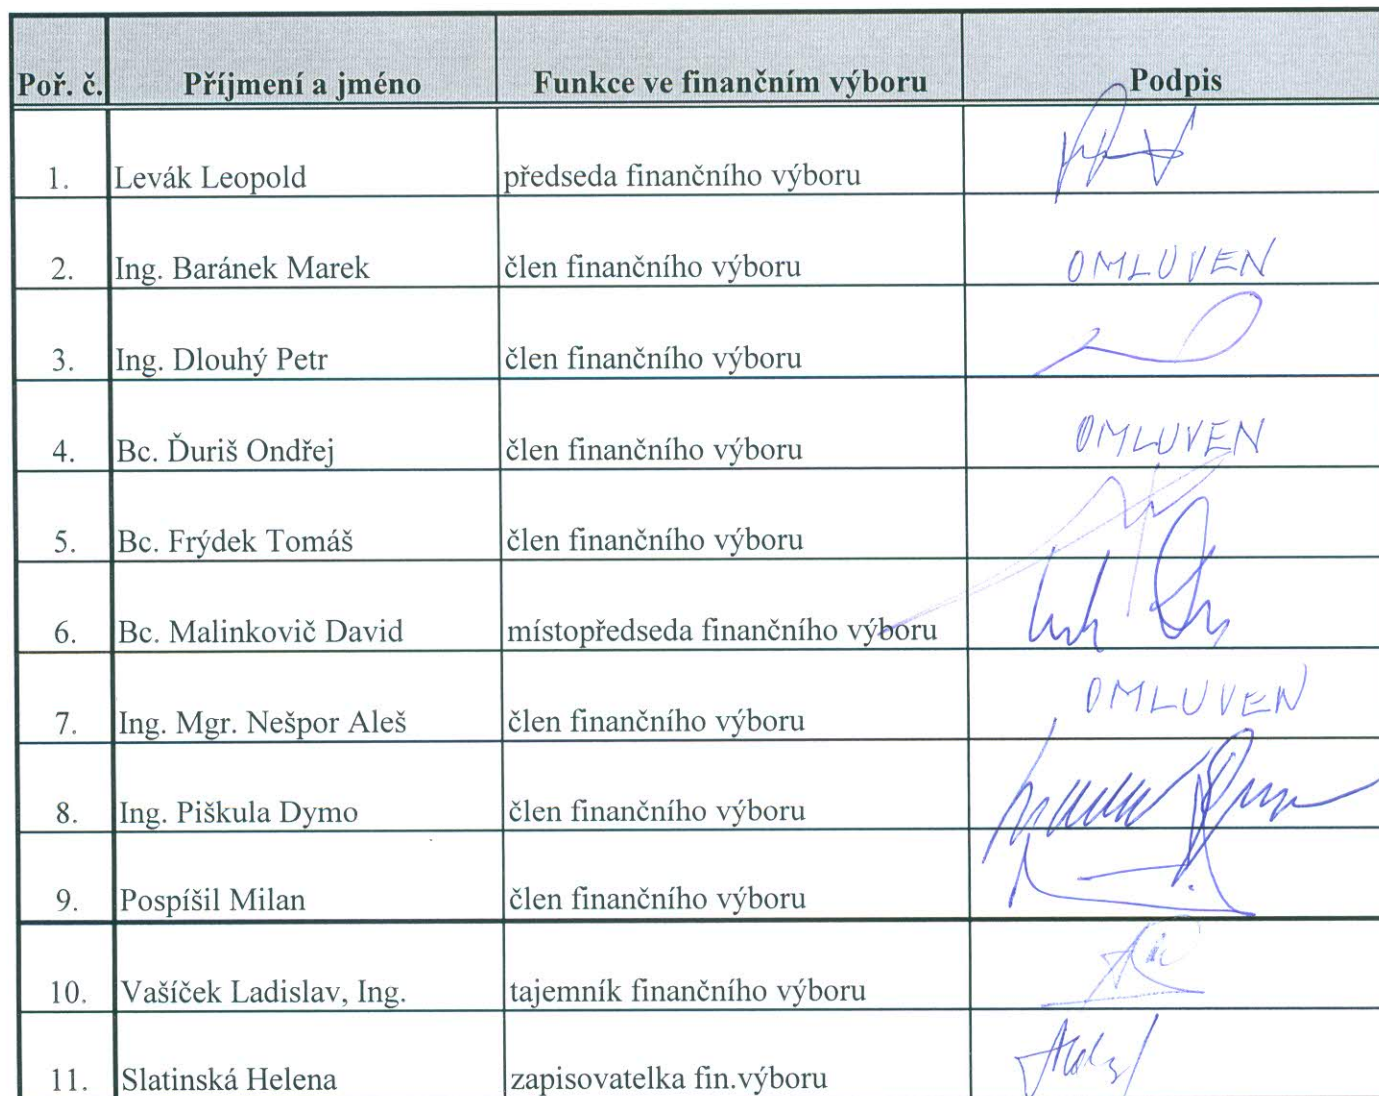 Poř. č. Příjmení a jméno Funkce ve finančním výboru Podpis
1. Levák Leopold předseda finančního výboru
2. Ing. Baránek Marek člen finančního výboru OMLUVEN
3. Ing. Dlouhý Petr člen finančního výboru
4. Bc. Ďuriš Ondřej člen finančního výboru OMLUVEN
5. Bc. Frýdek Tomáš člen finančního výboru
6. Bc. Malinkovič David místopředseda finančního výboru
7. Ing. Mgr. Nešpor Aleš člen finančního výboru OMLUVEN
8. Ing. Piškula Dymo člen finančního výboru
9. Pospíšil Milan člen finančního výboru
10. Vašíček Ladislav, Ing. tajemník finančního výboru
11. Slatinská Helena zapisovatelka fin.výboru